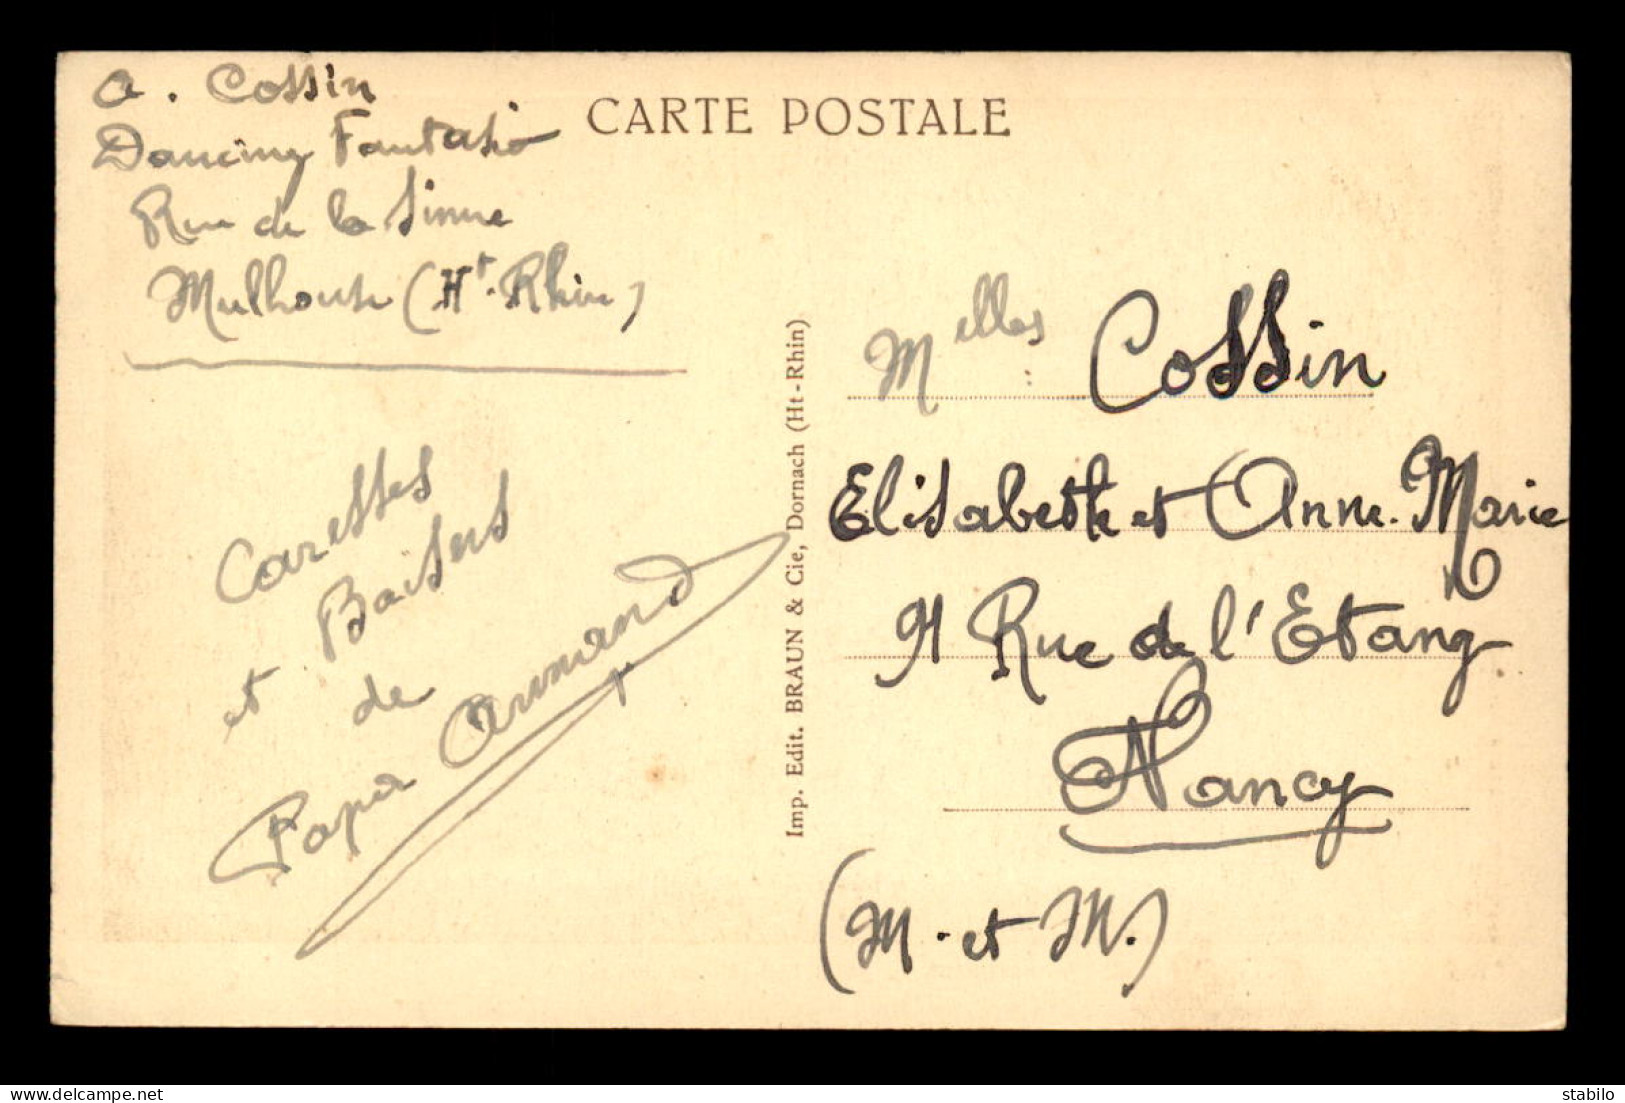 A. Cossin
Dancing Fantasio
Rue de la Sinne
Mulhouse (Ht. Rhin)
Caresses
et Baisers
de
Papa Armand
CARTE POSTALE
Imp. Edit. BRAUN & Cie, Dornach (Ht-Rhin)
Melles Cossin
Elisabeth et Anne-Marie
91 Rue de l'Etang
Nancy
(M. et M.)
stabilo